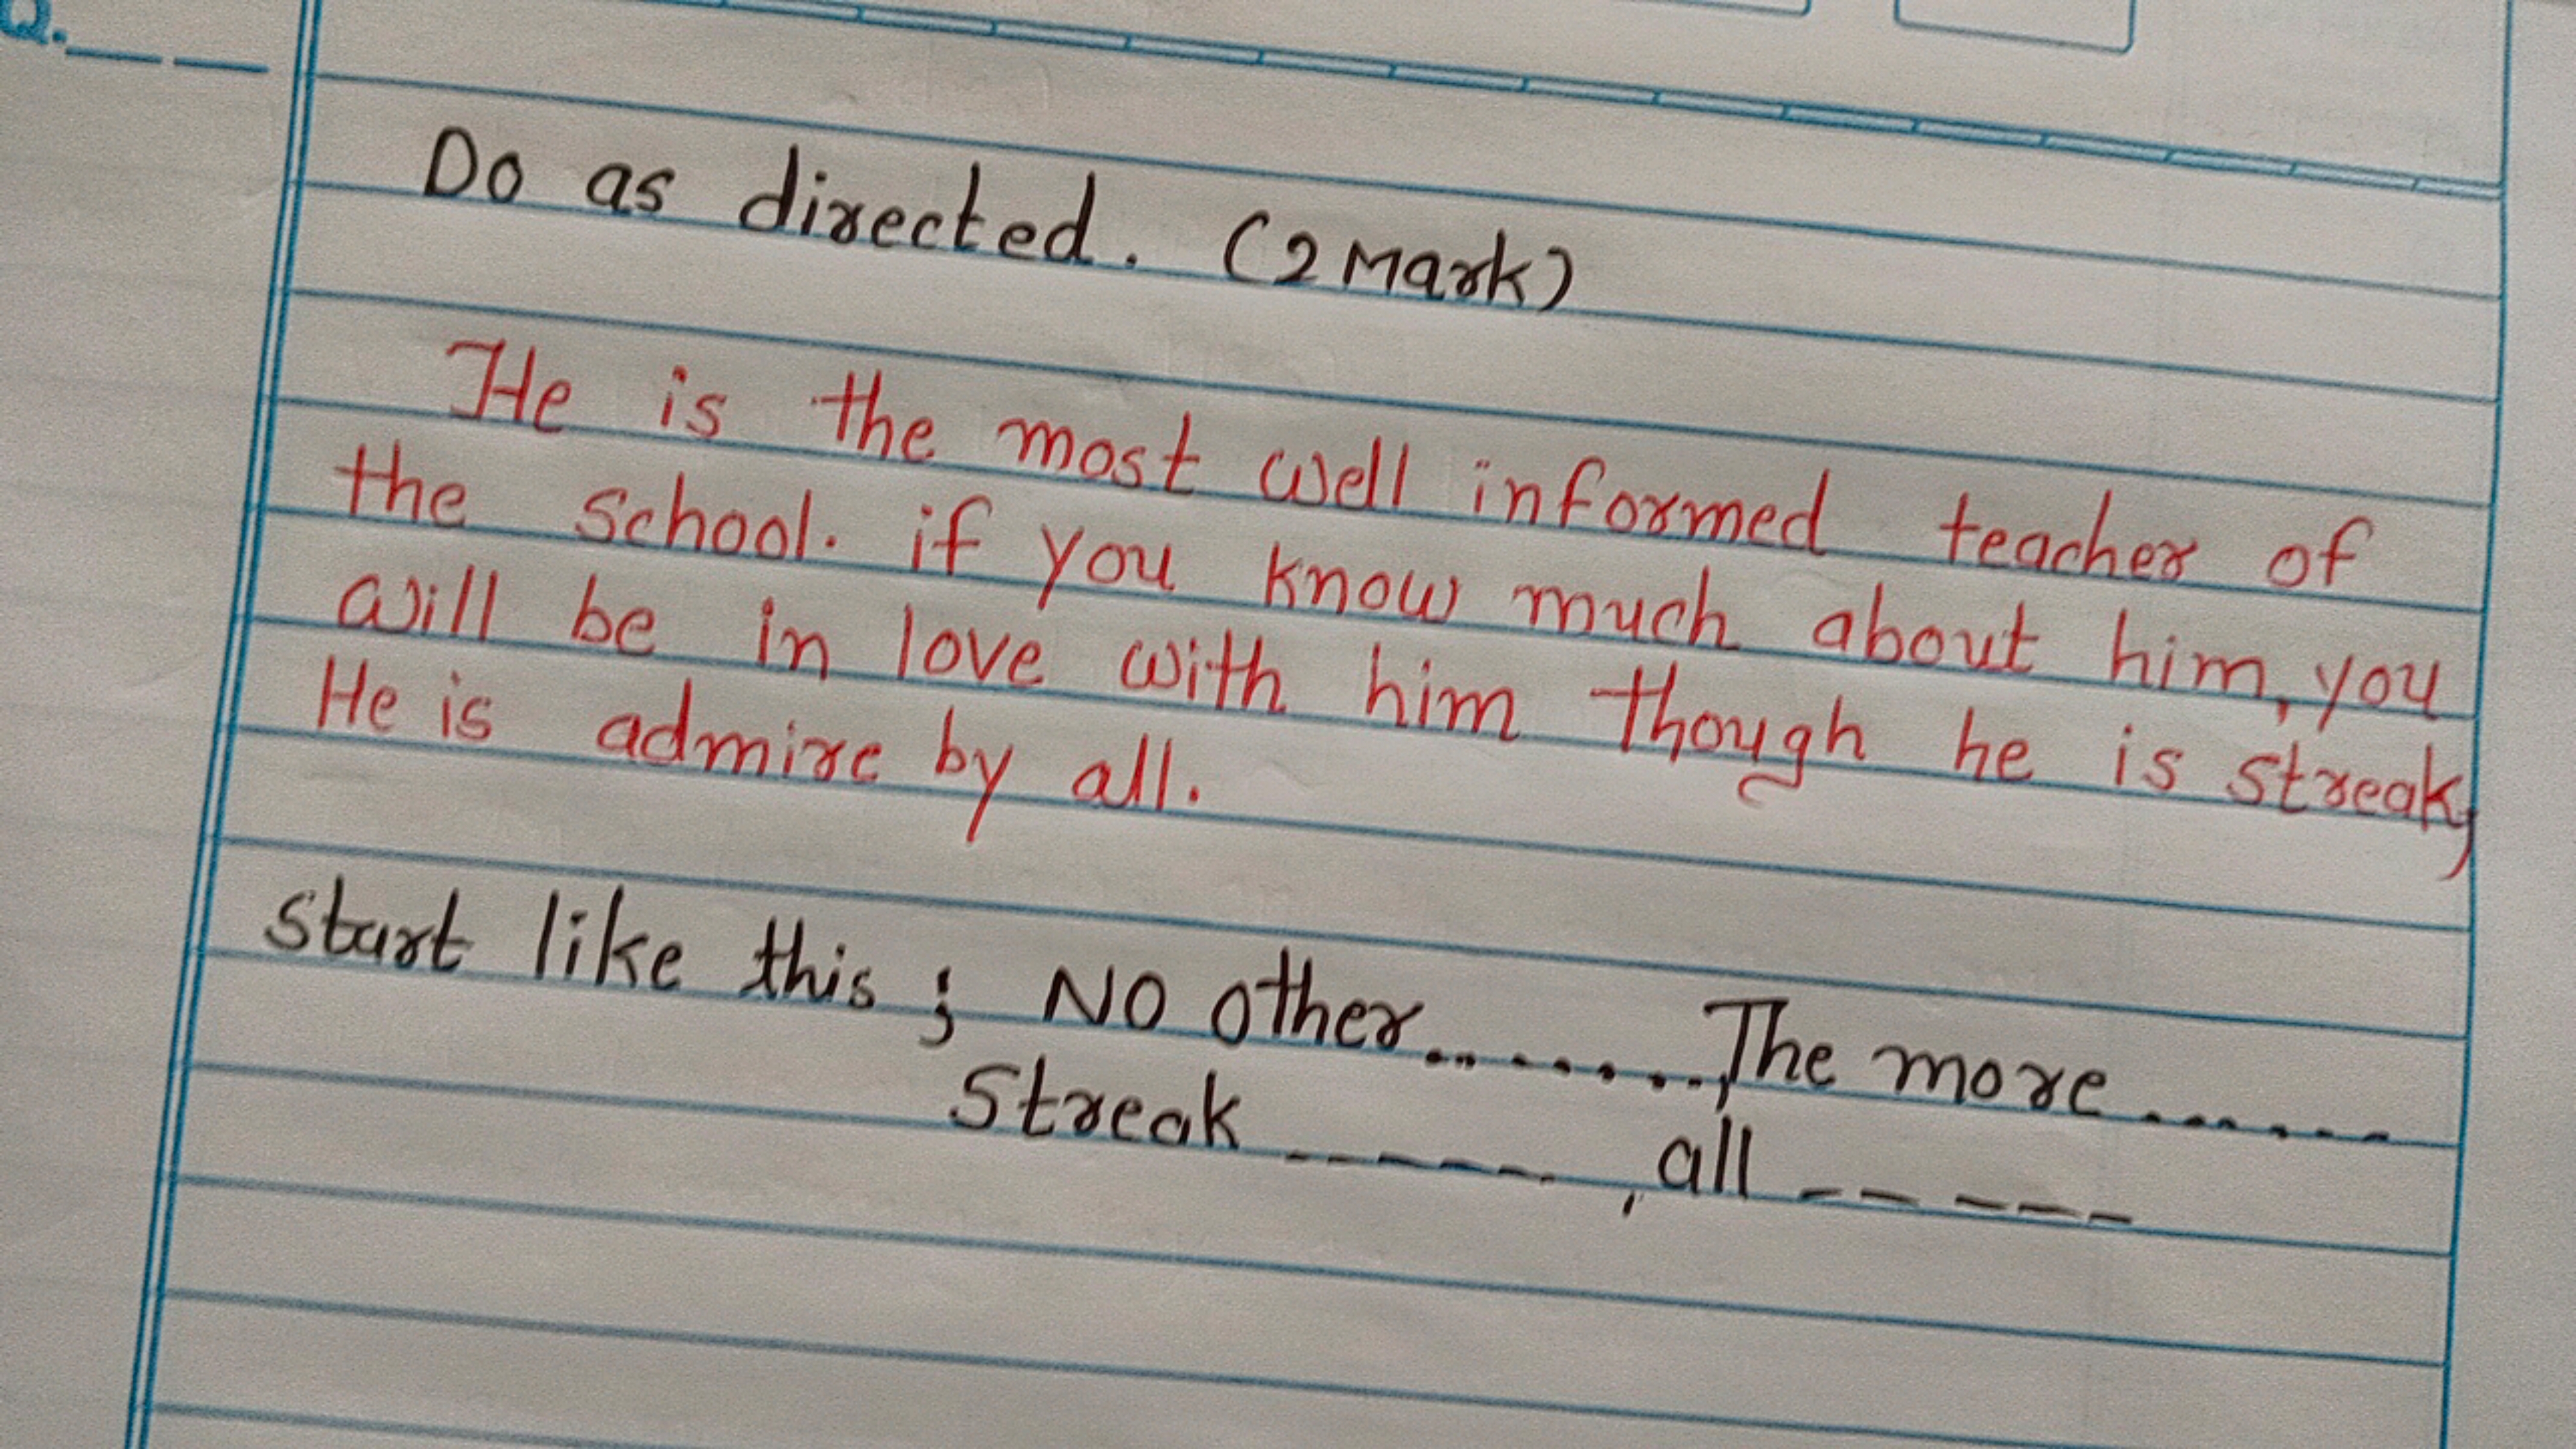 Q.
Do as directed. (2 Mark)
He is the most well informed teacher of
the school. if you know much about him, you
will be in love with him though he is streak,
He is admire by all.
start like this ; No other........, The more.......
Streak ------- , all -----